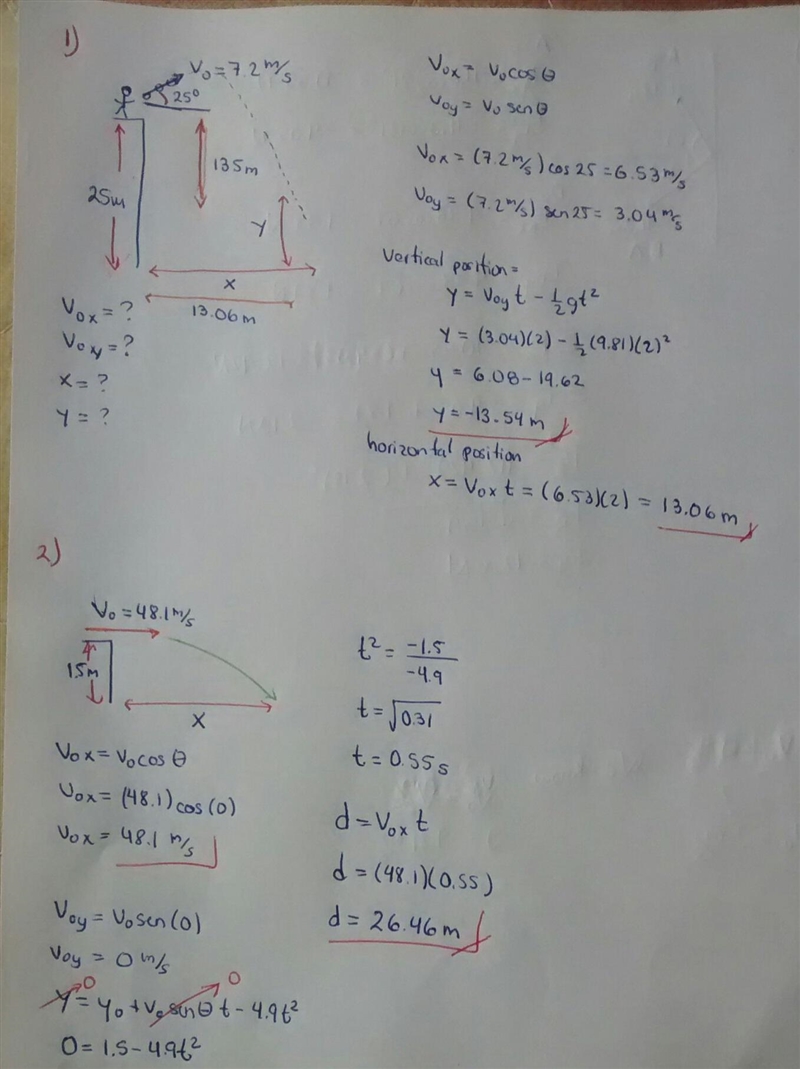 1)
V₀ = 7.2 m/s
25°
135m
25m
Y
X
13.06m
V₀x = ?
V₀xy = ?
X = ?
Y = ?
V₀x = V₀ cos θ
V₀y = V₀ sen θ
V₀x = (7.2 m/s) cos 25 = 6.53 m/s
V₀y = (7.2 m/s) sen 25 = 3.04 m/s
Vertical position =
Y = V₀y t - 1/2 gt²
Y = (3.04)(2) - 1/2 (9.81)(2)²
y = 6.08 - 19.62
Y = -13.54 m
horizontal position
X = V₀x t = (6.53)(2) = 13.06 m
2)
V₀ = 48.1 m/s
15m
X
V₀x = V₀ cos θ
V₀x = (48.1) cos (0)
V₀x = 48.1 m/s
V₀y = V₀ sen (0)
V₀y = 0 m/s
0 0
Y = y₀ + V₀ sen θ t - 4.9t²
0 = 1.5 - 4.9t²
t² = -1.5/-4.9
t = √0.31
t = 0.55 s
d = V₀x t
d = (48.1)(0.55)
d = 26.46 m